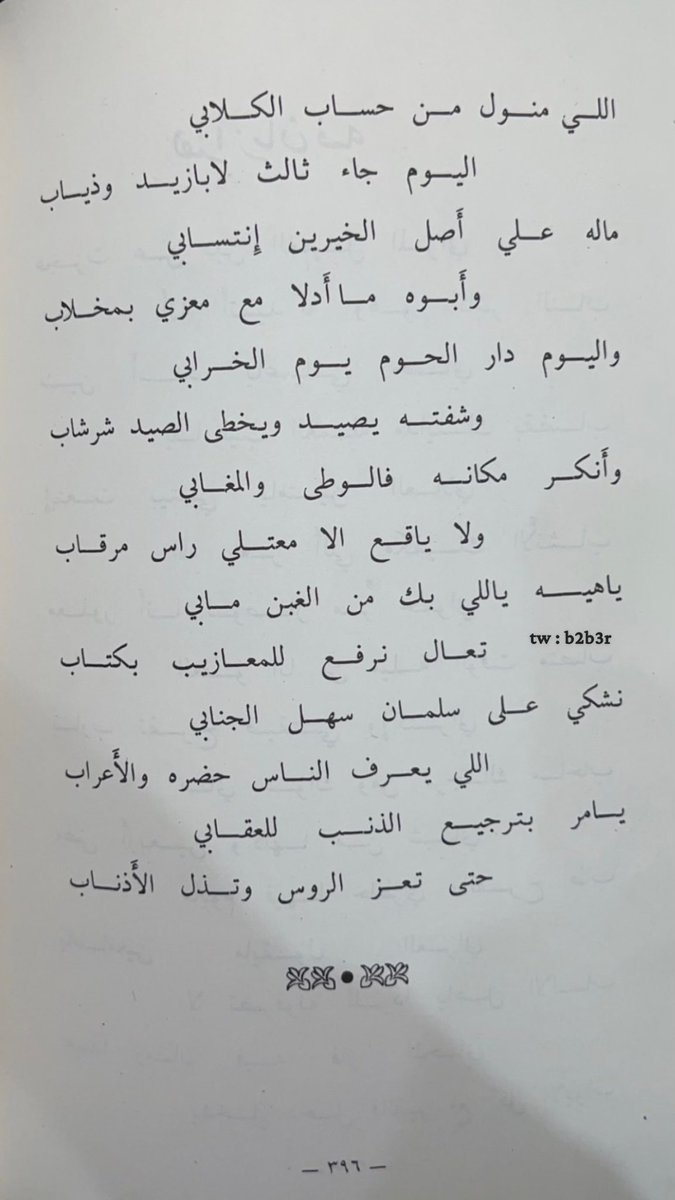 اللي منول من حساب الكلابي
اليوم جاء ثالث لابازيد وذياب
ماله علي أصل الخيرين إنتسابي
وأبوه ما أدلا مع معزي بمخلاب
واليوم دار الحوم يوم الخرابي
وشفته يصيد ويخطى الصيد شرشاب
وأنكر مكانه فالوطى والمغابي
ولا ياقع الا معتلي راس مرقاب
ياهيه ياللي بك من الغبن مابي
tw : b2b3r
تعال نرفع للمعازيب بكتاب
نشكي على سلمان سهل الجنابي
اللي يعرف الناس حضره والأعراب
يامر بترجيع الذنب للعقابي
حتى تعز الروس وتذل الأذناب
— ٣٩٦ —